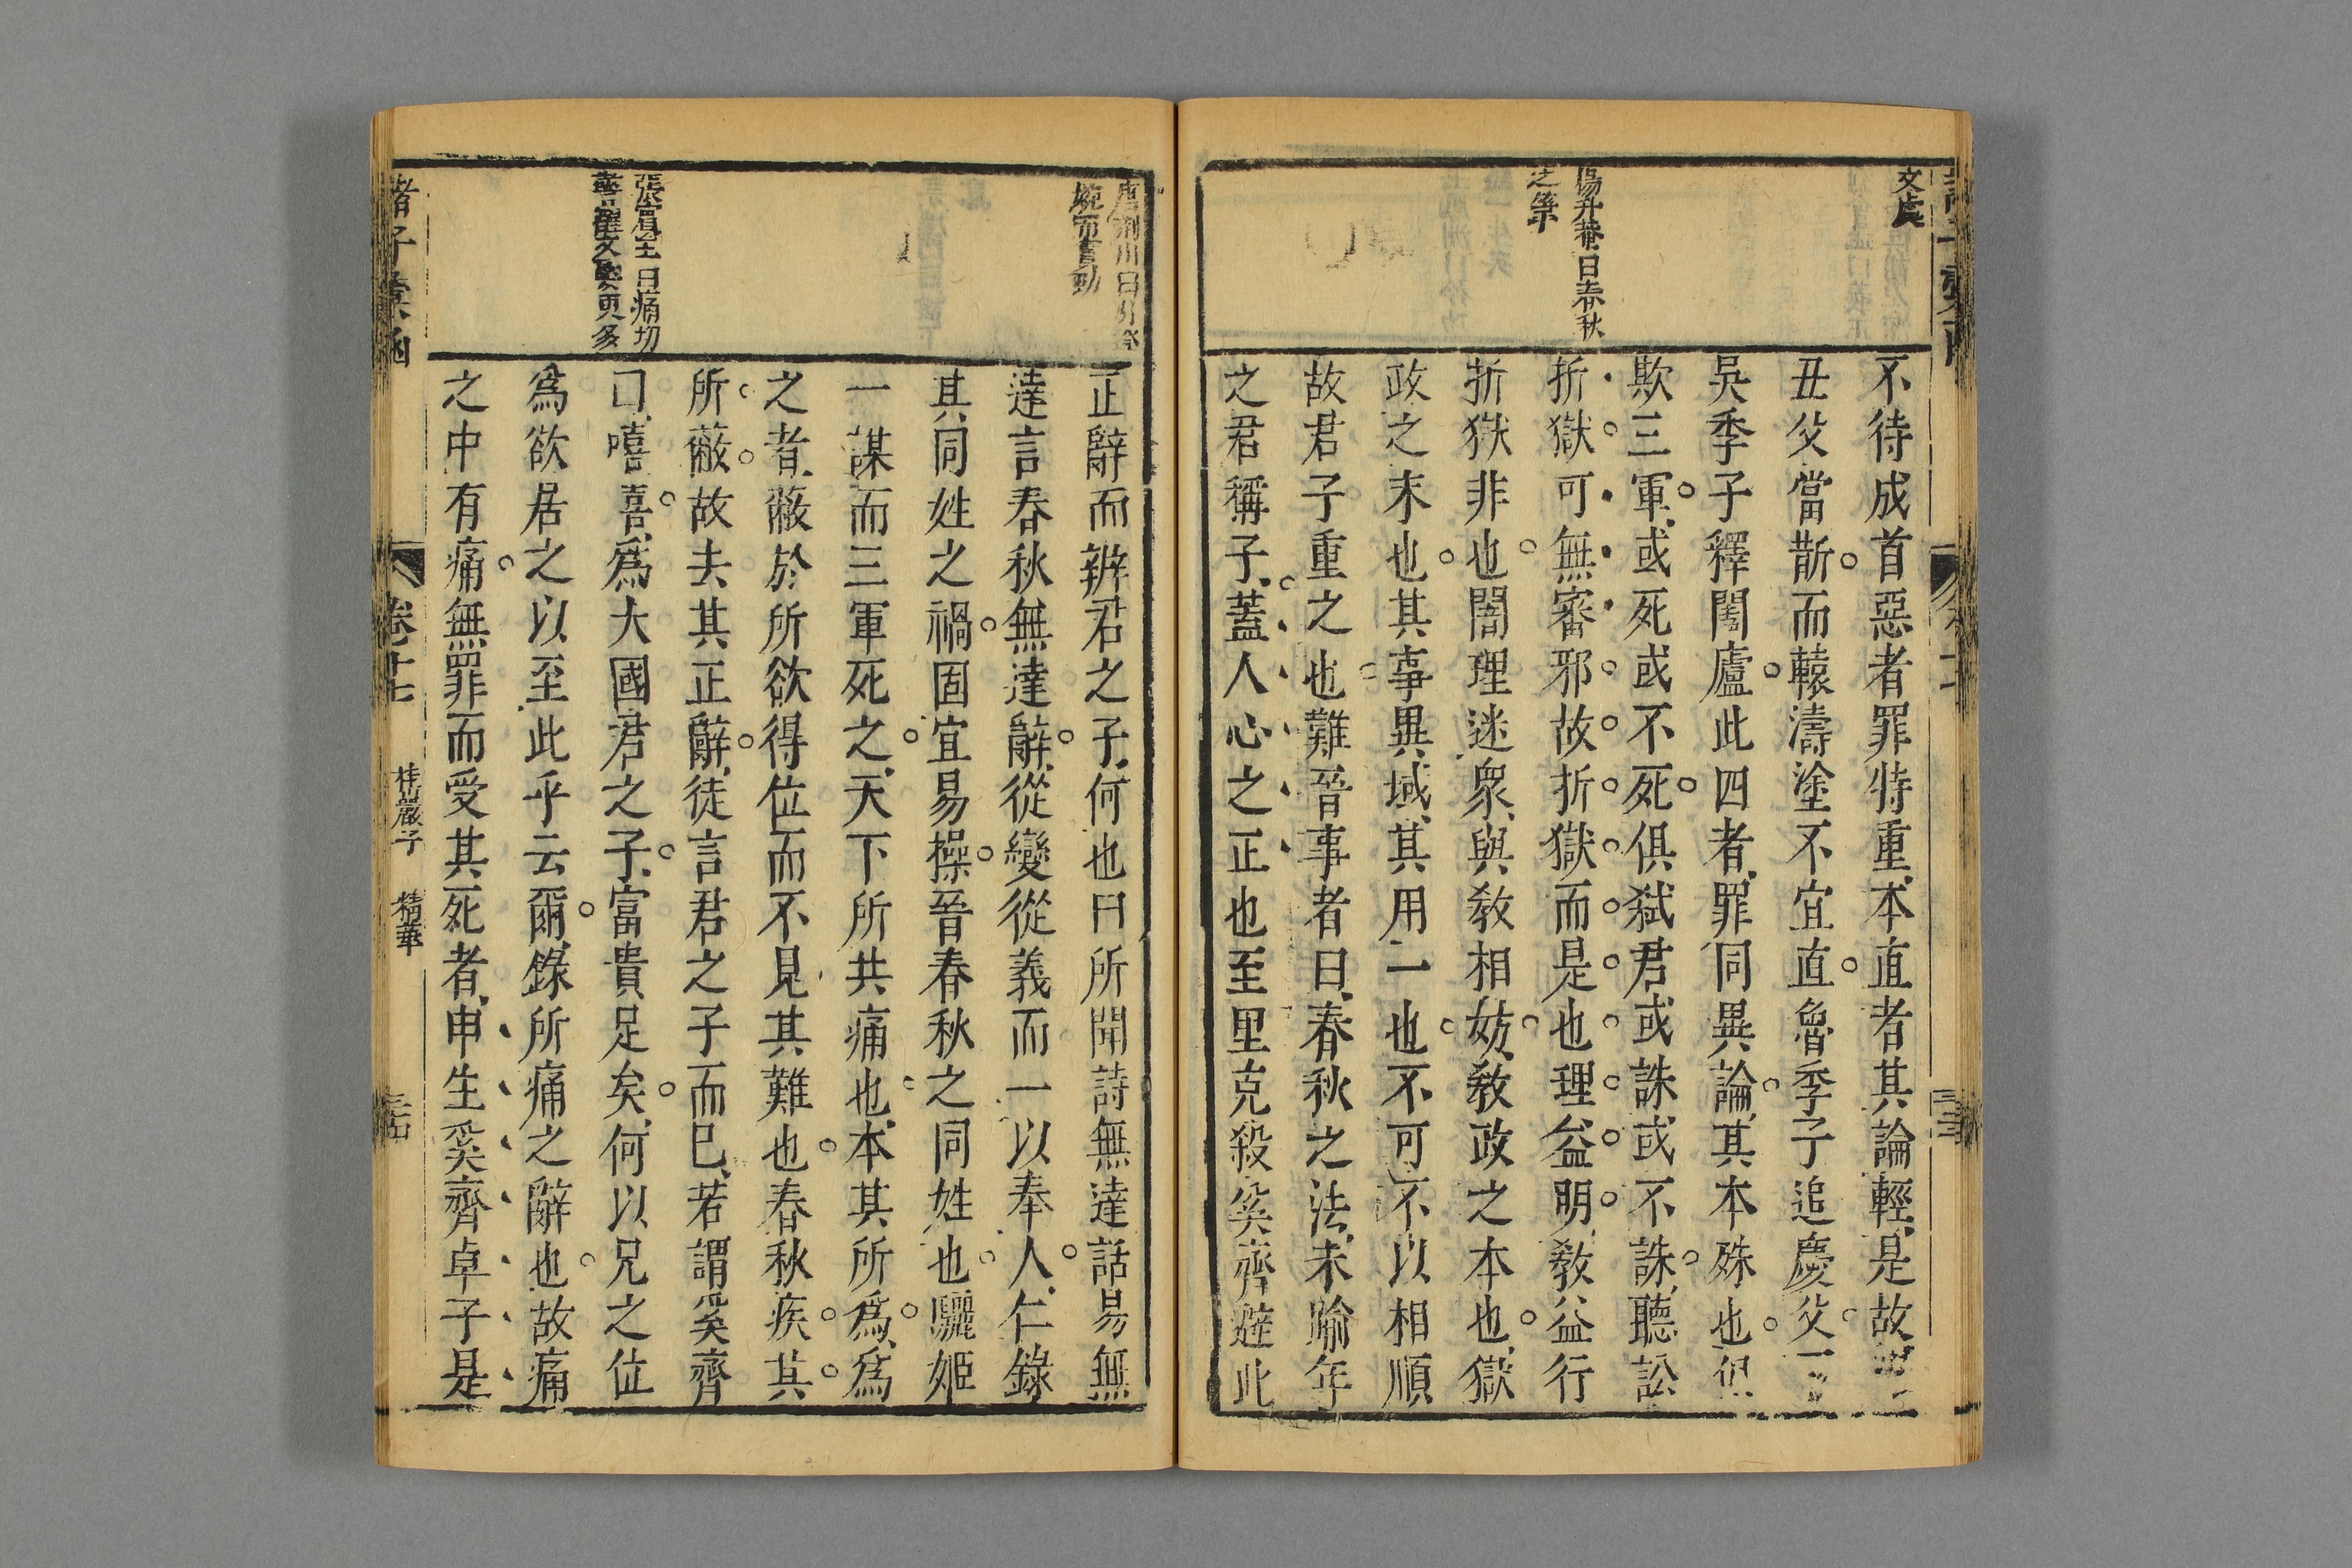 文處
楊升菴曰春秋
之策
不待成首惡者罪特重本直者其論輕是故
丑父當斮而轅濤塗不宜直魯季子追慶父
吳季子釋闔廬此四者罪同異論其本殊也但
欺三軍或死或不死俱弑君或誅或不誅聽訟
折獄可無審邪故折獄而是也理益明教益行
折獄非也闇理迷衆與教相妨教政之本也獄
政之末也其事異域其用一也不可不以相順
故君子重之也難晉事者曰春秋之法未踰年
之君稱子蓋人心之正也至里克殺奚齊避此
唐荊川曰
婉而
正辭而辨君之子何也曰所聞詩無達話易無
達言春秋無達辭從變從義而一以奉人仁錄
其同姓之禍固宜易操晉春秋之同姓也驪姬
一謀而三軍死之天下所共痛也本其所爲爲
張賓王曰痛切
之者蔽於所欲得位而不見其難也春秋疾其
所蔽故去其正辭徒言君之子而已若謂奚齊
口嘻喜爲大國君之子富貴足矣何以兄之位
爲欲居之以至此乎云爾錄所痛之辭也故痛
之中有痛無罪而受其死者申生奚齊卓子是
諸子彙函
卷十七
桂巖子
精華